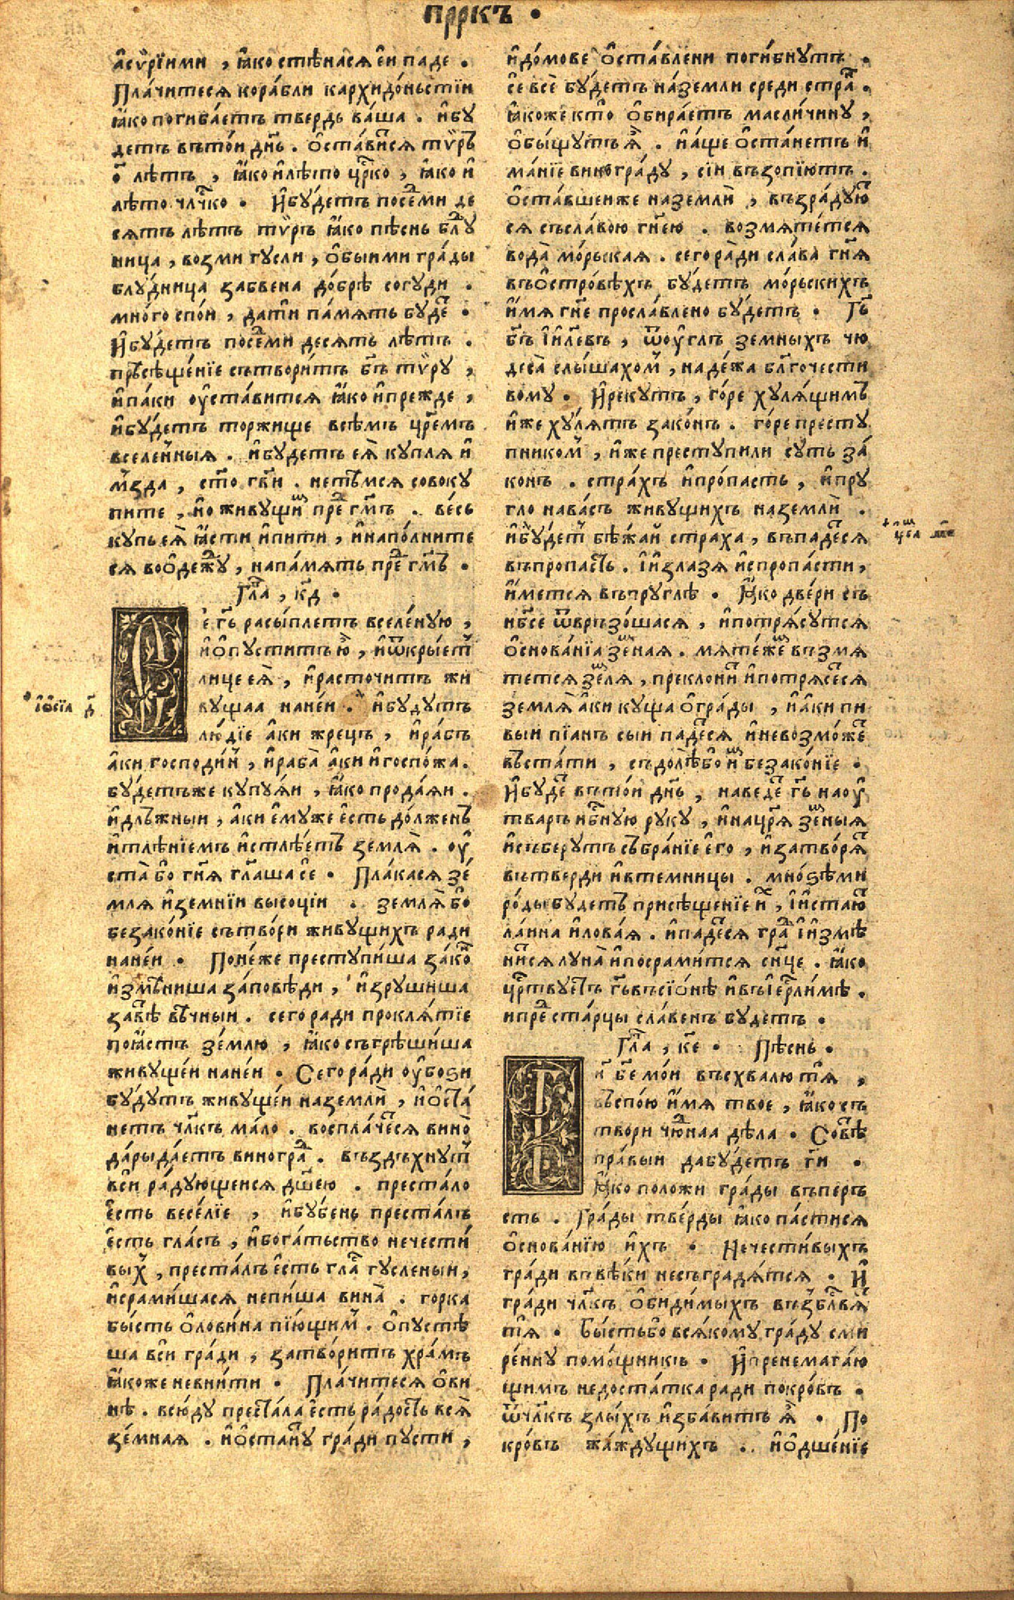 прркъ ·
а҆сѵ́рїими , ꙗ҆ко стѣнасѧ є҆и паде .
Плачитесѧ кора́бли кархидо́ньстїи
ꙗ҆ко погибаетъ твердь ва́ша . и҆бу
детъ вътои днь . ѻ҆ста́висѧ тѵръ
ѻ҃ лѣтъ , ꙗ҆ко и҆лѣто црко , ꙗ҆ко и҆
лѣто члчко . И҆будетъ посеми де
сѧть лѣтъ тѵръ ꙗ҆ко пѣснь блу
ница , возми гусли , ѻ҆быими гра́ды
блудница забвена до́брѣ согуди .
много спои , дати па́мѧть буде .
И҆бу́детъ посеми десѧть лѣтъ .
присѣщенїе сътворитъ бгъ тѵру ,
и҆паки оу҆ставитсѧ ꙗ҆ко и҆прежде ,
и҆будетъ торжище всѣмъ цремъ
вселе́нныѧ . и҆будетъ еѧ купла и҆
мъзда , сто гви . нетъмсѧ совоку
пите , но живущи пре гмъ . весь
купь еѧ ꙗ҆сти и҆пити , и҆наполните
сѧ воѻ҆дежду , напа́мѧть пре гмъ .
Гла , кд .
се гъ расыплетъ вселе́ную ,
и҆ѻ҆пуститъ ю҆ , и҆ѿкрыет
лице еѧ , и҆расточитъ жи
вущаа наней . и҆будутъ
лю́дїе а҆ки жрецъ , и҆рабъ
а҆ки господи́н , и҆раба а҆ки и҆госпожа .
будетъже купуѧи , ꙗ҆ко продаѧи .
и҆длъжныи , а҆ки є҆муже є҆сть до́лженъ
и҆тлѣнїемъ и҆стлѣетъ землѧ . оу҆
ста бо гнѧ глаша се . Пла́касѧ зе́
млѧ и҆земнїи высоцїи . землѧ бо
безако́нїе сътвори живущихъ ради
наней . Понеже преступиша зако
и҆змѣниша за́повѣди , и҆зрушиша
завѣ вѣчныи . сего ради проклѧ́тїе
поꙗ҆стъ землю , ꙗ҆ко съгрѣшиша
живущеи наней . Сего ради оу҆бози
будутъ живущеи наземли , и҆ѻ҆ста
нетъ члкъ мало . восплачесѧ вино
да́ры даетъ виногра . въздъхнут
вси ра́дующеисѧ дшею . преста́ло
є҆сть весе́лїе , и҆бубень преста́лъ
є҆сть гласъ , и҆бога́тьство нечести
вых , преста́лъ є҆сть гла гусленыи ,
и҆срами́шасѧ непиша вина . горка
бысть ѻ҆лови́на пїющим . ѻ҆пустѣ
ша вси гради , затворитъ храмъ
ꙗ҆коже невнити . Пла́читесѧ ѻ҆ви
нѣ . всюду престала є҆сть ра́дость всѧ
зе́мнаѧ . и҆ѻ҆станут гради пусти ,
и҆домове ѻ҆ставлени погибнутъ .
се все бу́детъ наземли среди стра .
ꙗ҆коже кто ѻ҆бира́етъ масличину ,
ѻ҆быщутъ ѧ . и҆аще ѻ҆станетъ и҆
ма́нїе винограду , сїи възопїютъ .
ѻ҆ставшеиже наземли , възра́дую
сѧ съславою гнею . возмѧтетсѧ
вода мо́рьскаѧ . сегора́ди слава гнѧ
въѻ҆стровѣхъ будетъ мо́рьскихъ
и҆мѧ гне прославлено бу́детъ . Гъ
бгъ і҆илевъ , ѿоуглъ земныхъ чю
деса слышахом , наде́жа блгочести
вому . И҆рекутъ , го́ре хулѧщимъ
и҆же ху́лѧтъ зако́нъ . го́ре престу
пником , и҆же преступили суть за
конъ . страхъ и҆пропасть , и҆пру
гло нава́съ живущихъ наземли .
и҆бу́дет бѣжай стра́ха , въпадесѧ
въпропасть . І҆излазѧ и҆спропа́сти ,
и҆метсѧ въпруглѣ . Ꙗ҆ко две́ри съ
нбсе ѿвръзо́шасѧ , и҆потрѧсутсѧ
ѻ҆снова́нїа земнаѧ . мѧтежеⷨ възмѧ
тетсѧ землѧ , преклони и҆потрѧсесѧ
землѧ а҆ки куща ѻ҆гра́ды , и҆аки пи
выи пїанъ сыи падесѧ и҆невозможе
въстати , съдолѣбо и безако́нїе .
И҆буде вътои днь , наведе гъ наоу
тварь нбную руку , и҆нацрѧ земныѧ
и҆съберутъ събра́нїе є҆го , и҆затворѧ
вътверди и҆втемницы . мно́зѣми
ро́ды будетъ присѣщенїе и , і҆истаю
ла́ина и҆лова́ѧ . и҆падесѧ гра і҆измѣ
нисѧ луна и҆посрамитсѧ снце . ꙗ҆ко
црствуетъ гъ въсїѻнѣ и҆въіерлимѣ .
ипре старцы славенъ будетъ .
Гла , ке . Пѣснь .
Ги бе мои въсхвалю тѧ ,
въспою и҆мѧ твое , ꙗ҆кохъ
твори чюднаа дѣла . Совѣ
пра́выи дабу́детъ ги .
Ꙗ҆ко положи гра́ды въперъ
сть . Гра́ды тве́рды ꙗ҆ко па́стисѧ
ѻ҆снова́нїю и҆хъ . Нечестивыхъ
гради въвѣки несъградѧтсѧ . И҆
гради члкъ ѻ҆бидимыхъ възблвѧ
тѧ . Бы́стьбо всѧкому гра́ду сми
ре́нну помо́щникъ . И҆пренемага́ю
щимъ недоста́тка ради покро́въ .
ѿчлкъ злы́хъ и҆зба́витъ ѧ . По
кро́въ жа́ждущихъ . и҆ѻ҆дше́нїе